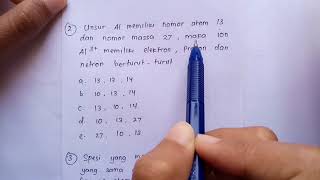 2 Unsur Al memiliki nomor atom 13
dan nomor massa 27 , maka ion
Al 3+ memiliki elektron , Proton dan
netron berturut-turut
a. 13 . 13 . 14
b. 10 . 13 . 14
c. 13 . 10 . 14
d. 10 . 13 . 27
e. 27 . 10 . 13
3 Spesi yang
yang sama